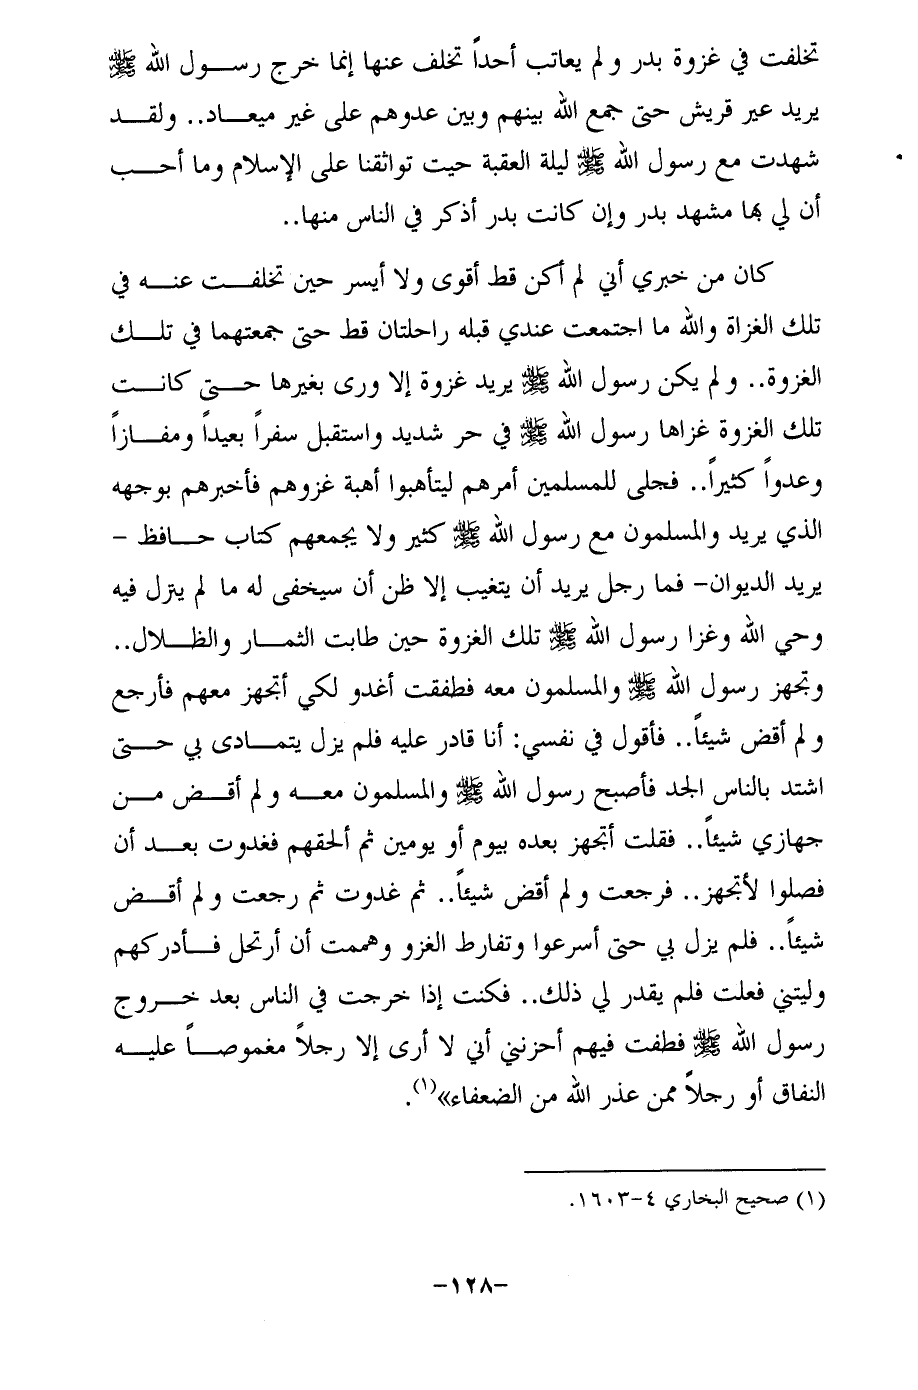 تخلفت في غزوة بدر ولم يعاتب أحداً تخلف عنها إنما خرج رسول الله ﷺ
يريد عير قريش حتى جمع الله بينهم وبين عدوهم على غير ميعاد.. ولقد
شهدت مع رسول الله ﷺ ليلة العقبة حيت تواثقنا على الإسلام وما أحب
أن لي بها مشهد بدر وإن كانت بدر أذكر في الناس منها..
كان من خبري أني لم أكن قط أقوى ولا أيسر حين تخلفت عنه في
تلك الغزاة والله ما اجتمعت عندي قبله راحلتان قط حتى جمعتهما في تلك
الغزوة.. ولم يكن رسول الله ﷺ يريد غزوة إلا ورى بغيرها حتى كانت
تلك الغزوة غزاها رسول الله ﷺ في حر شديد واستقبل سفراً بعيداً ومفازاً
وعدواً كثيراً.. فجلى للمسلمين أمرهم ليتأهبوا أهبة غزوهم فأخبرهم بوجهه
الذي يريد والمسلمون مع رسول الله ﷺ كثير ولا يجمعهم كتاب حافظ –
يريد الديوان– فما رجل يريد أن يتغيب إلا ظن أن سيخفى له ما لم ينزل فيه
وحي الله وغزا رسول الله ﷺ تلك الغزوة حين طابت الثمار والظلال..
وتجهز رسول الله ﷺ والمسلمون معه فطفقت أغدو لكي أتجهز معهم فأرجع
ولم أقض شيئاً.. فأقول في نفسي: أنا قادر عليه فلم يزل يتمادى بي حتى
اشتد بالناس الجد فأصبح رسول الله ﷺ والمسلمون معه ولم أقض من
جهازي شيئاً.. فقلت أتجهز بعده بيوم أو يومين ثم ألحقهم فغدوت بعد أن
فصلوا لأتجهز.. فرجعت ولم أقض شيئاً.. ثم غدوت ثم رجعت ولم أقض
شيئاً.. فلم يزل بي حتى أسرعوا وتفارط الغزو وهممت أن أرتحل فأدركهم
وليتني فعلت فلم يقدر لي ذلك.. فكنت إذا خرجت في الناس بعد خروج
رسول الله ﷺ فطفت فيهم أحزنني أني لا أرى إلا رجلاً مغموصاً عليه
النفاق أو رجلاً ممن عذر الله من الضعفاء»(١).
(١) صحيح البخاري ٤–١٦٠٣.
–١٢٨–